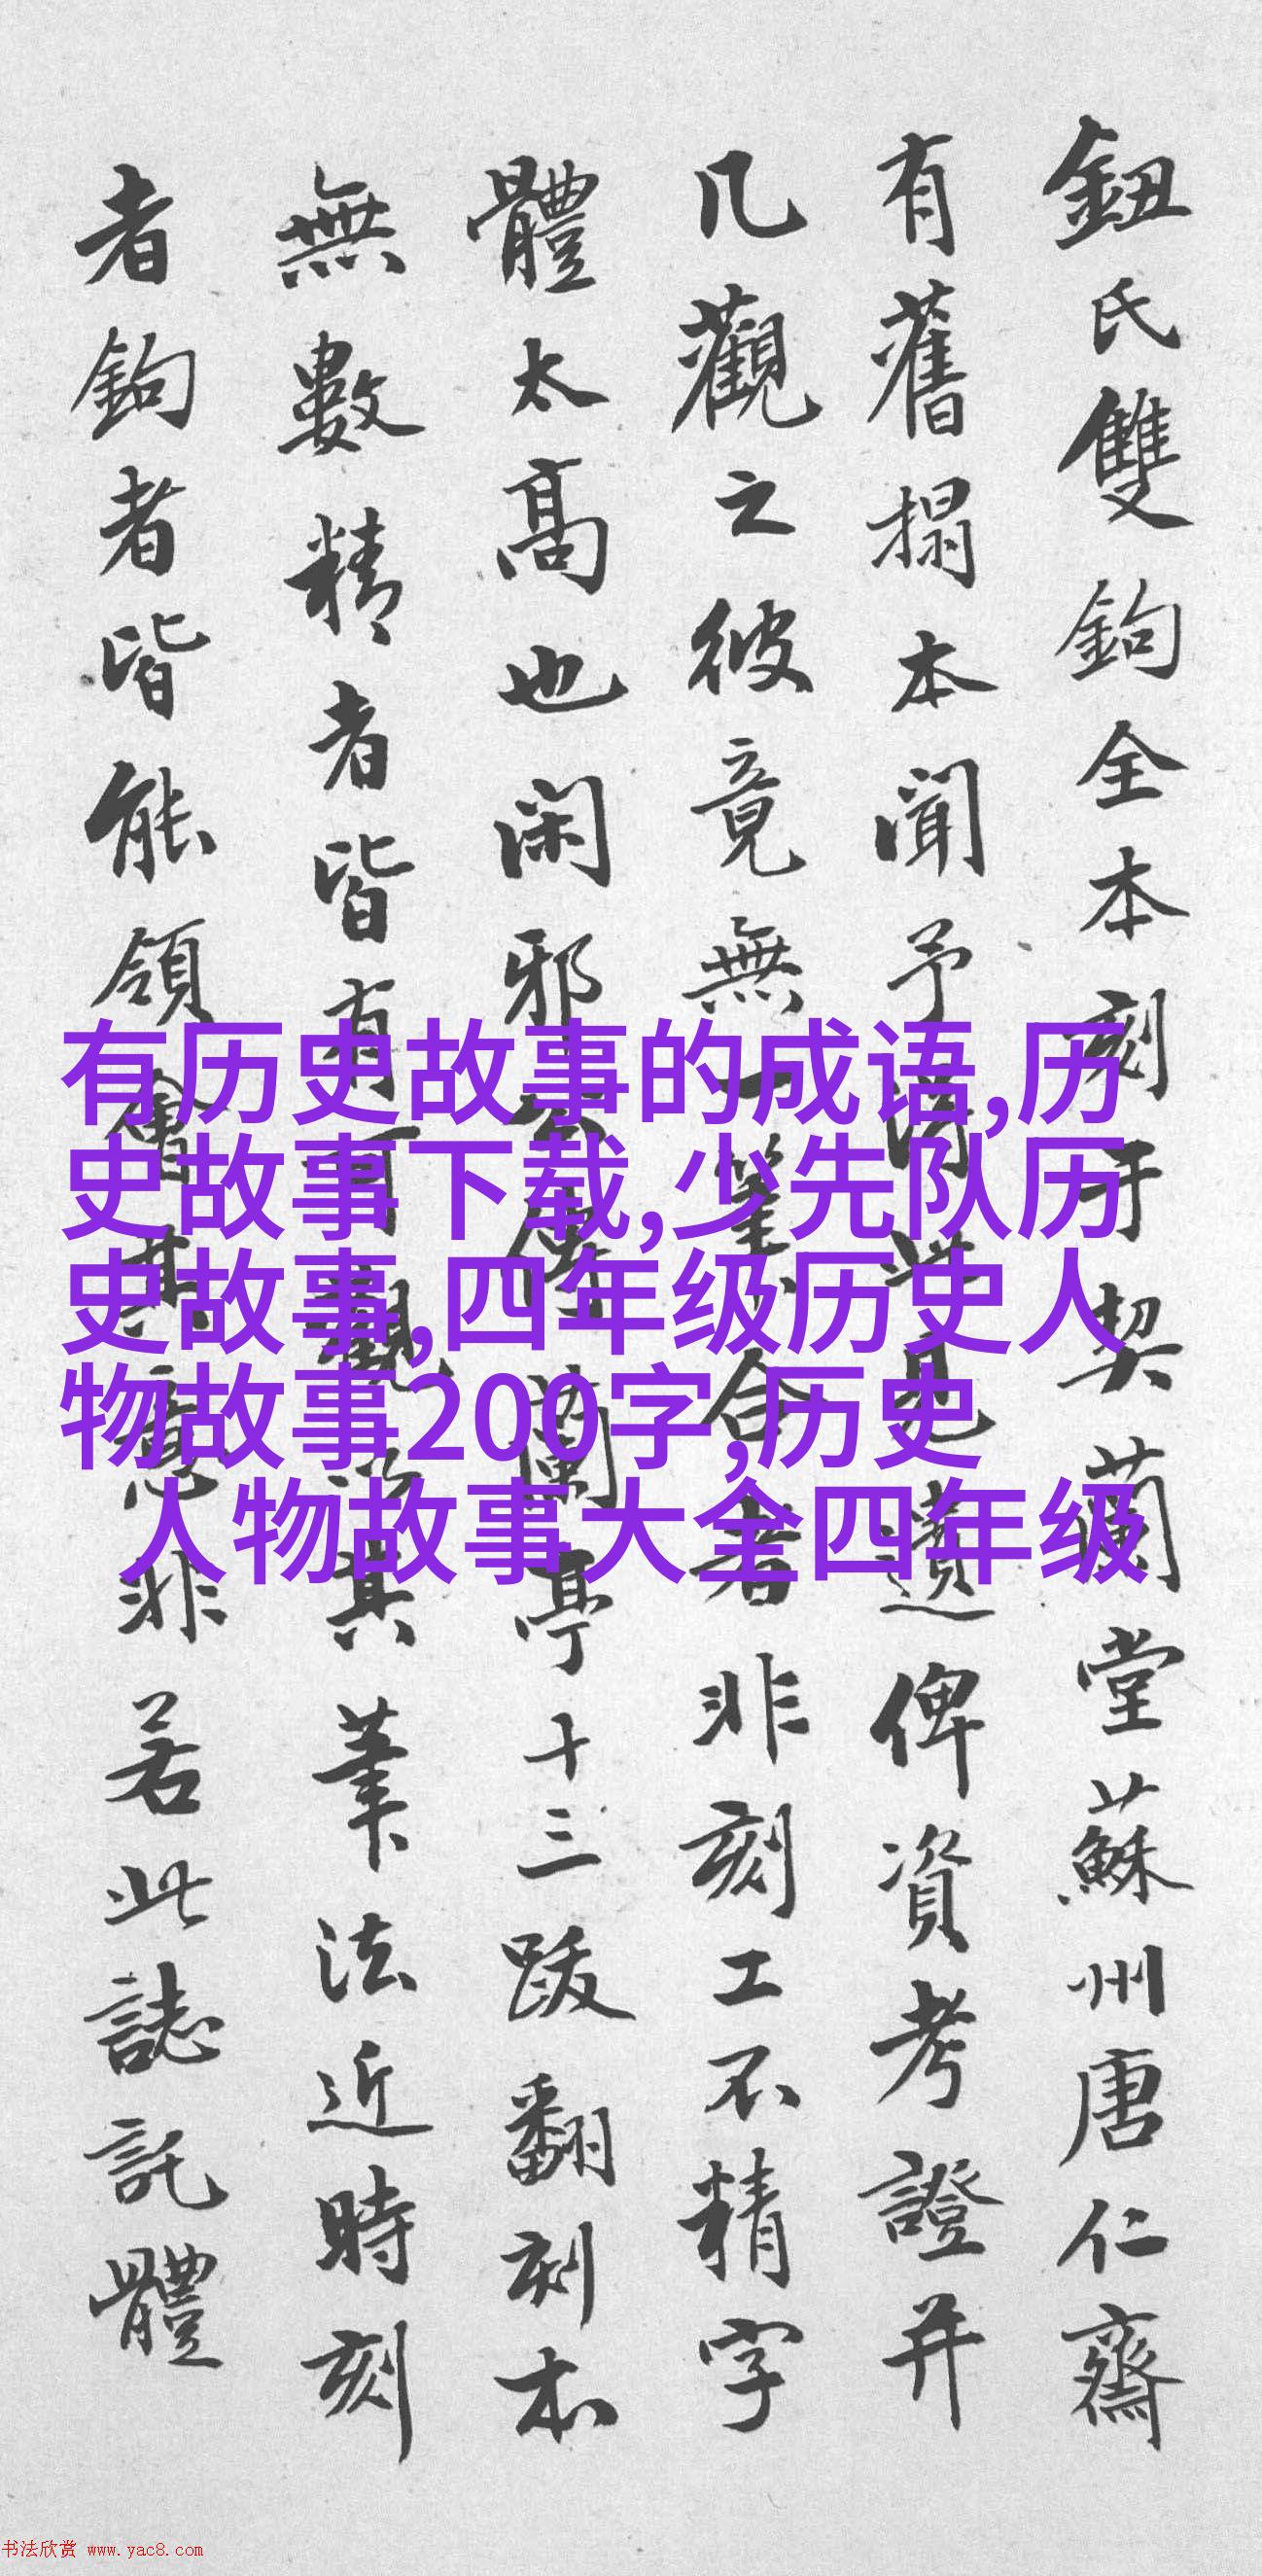 鈕氏雙鉤全本刻于契蘭堂蘇州唐仁齋
有舊搨本聞予此見遺俾資考證并
几觀之彼竟無一筆合者非刻工不精字
體太高也閑邪公家傳蘭亭十三跋翻刻本
無數精者皆有可觀以其筆法近時刻
者鉤者皆能領會其意非若此誌託體
有历史故事的成语,历
史故事下载,少先队历
史故事,四年级历史人
物故事200字,历史
人物故事大全四年级
书法欣赏 www.yac8.com